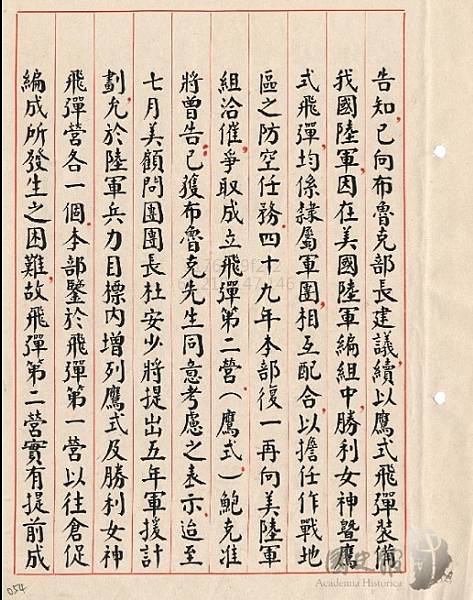 告知，已向布魯克部長建議，續以鷹式飛彈裝備
我國陸軍，因在美國陸軍編組中，勝利女神暨鷹
式飛彈，均係隸屬軍團，相互配合以擔任作戰地
區之防空任務。四十九年本部復一再向美陸軍
組洽催，爭取成立飛彈第二營（鷹式）鮑克准
將曾告已獲布魯克先生同意考慮之表示。迨至
七月美顧問團團長杜安少將提出五年軍援計
劃，允於陸軍兵力目標內增列鷹式及勝利女神
飛彈營各一個。本部鑒於飛彈第一營以往倉促
編成所發生之困難，故飛彈第二營實有提前成
054
國史館
Academia Historica